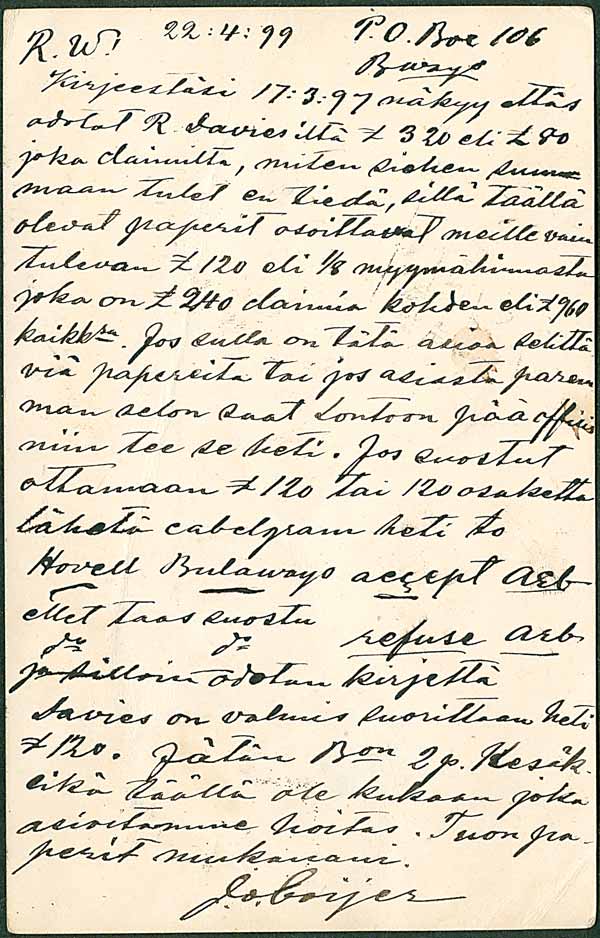 R. W! 22:4:99 P.O. Box 106
Bwayo
Kirjeestäsi 17:3:97 näkyy ettäs
odotat R. Davies'iltä £ 320 eli £ 80
joka claimilta, miten siehen sum-
maan tulet en tiedä, sillä täällä
olevat paperit osoittavat meille vain
tulevan £ 120 eli 1/8 myymähinnasta
joka on £ 240 claimia kohden eli £ 960
kaikkra. Jos sulla on tätä asiaa selittä
viä papereita tai jos asiasta parem
man selon saat Lontoon pää offisis
niin tee se heti. Jos suostut
ottamaan £ 120 tai 120 osaketta
lähetä cabelgram heti to
Hovell Bulawayo accept Arb
ellet taas suostu
do do refuse Arb
ja silloin odotan kirjettä
Davies on valmis suorittaan heti
£ 120. Jätän Bon 2 p. Kesäk.
eikä täällä ole kukaan joka
asioitamme hoitas. Tuon pa-
perit mukanani.
J. o. Coijer